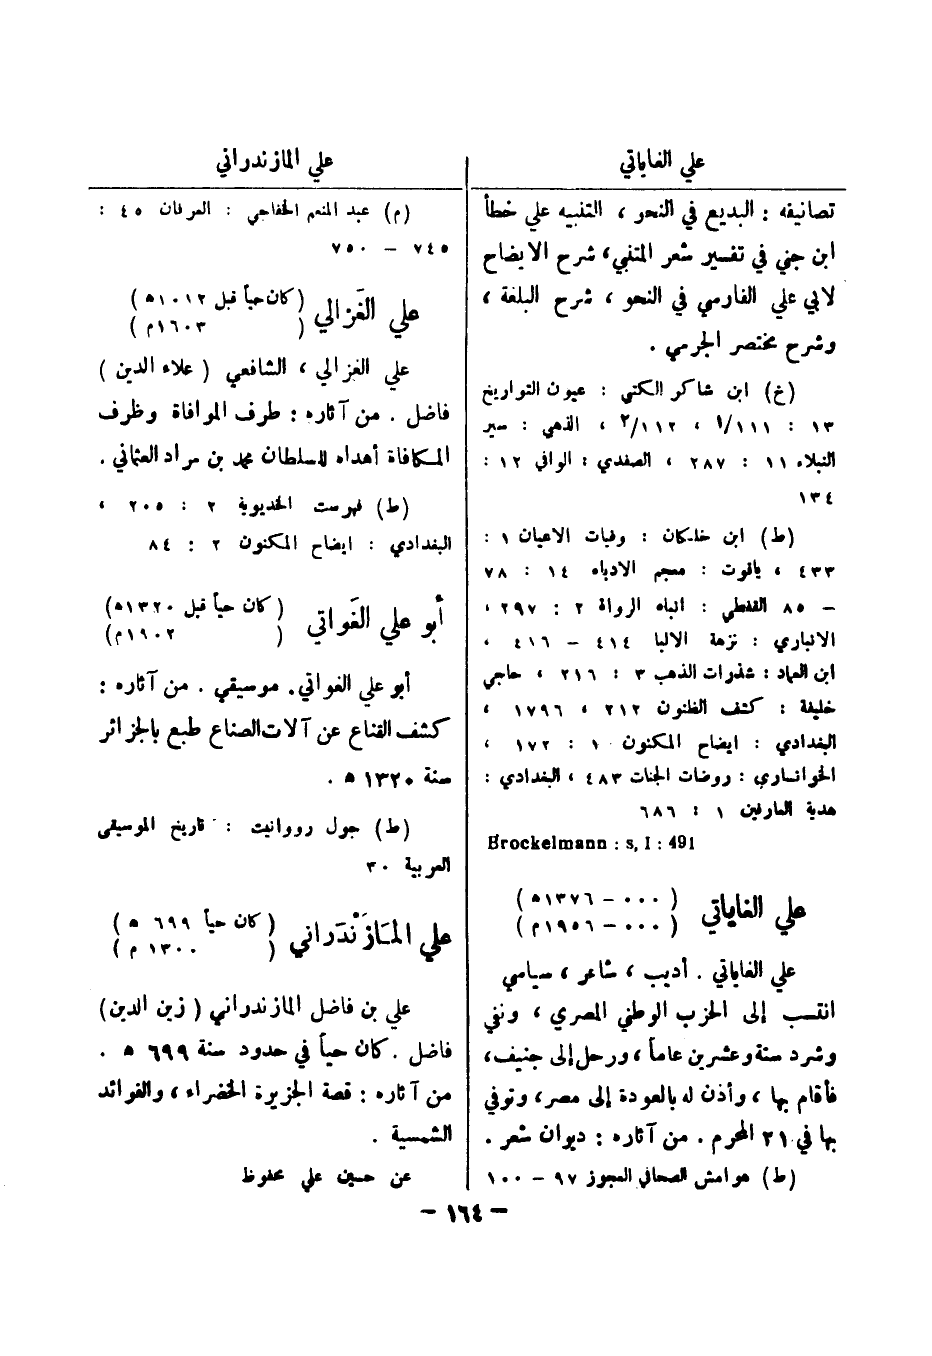 علي الغاياتي
تصانيفه : البديع في النحو ، التنبيه على خطأ
ابن جني في تفسير شعر المتنبي ، شرح الايضاح
لابي علي الفارسي في النحو ، شرح البلغة ،
وشرح مختصر الجرمي .
(خ) ابن شاكر الكتبي : عيون التواريخ
١٣ : ١١١/١ ، ١١٢/٢ ، الذهبي : سير
النبلاء ١١ : ٢٨٧ ، الصفدي : الوافي ١٢ :
١٣٤
(ط) ابن خلكان : وفيات الاعيان ١ :
٤٣٣ ، ياقوت : معجم الادباء ١٤ : ٧٨
- ٨٥ القفطي : انباه الرواة ٢ : ٢٩٧ ،
الانباري : نزهة الالبا ٤١٤ - ٤١٦ ،
ابن العماد : شذرات الذهب ٣ : ٢١٦ ، حاجي
خليفة : كشف الظنون ٢١٢ ، ١٧٩٦ ،
البغدادي : ايضاح المكنون ١ : ١٧٢ ،
الخوانساري : روضات الجنات ٤٨٣ ، البغدادي :
هدية العارفين ١ : ٦٨٦
Brockelmann : s, I : 491
علي الغاياتي ( ٠٠٠ - ١٣٧٦ ه )
( ٠٠٠ - ١٩٥٦ م )
علي الغاياتي . أديب ، شاعر ، سيامي
انتسب إلى الحزب الوطني المصري ، ونفي
وشرد ستة وعشرين عاماً ، ورحل إلى جنيف ،
فأقام بها ، وأذن له بالعودة إلى مصر ، وتوفي
بها في ٢١ المحرم . من آثاره : ديوان شعر .
(ط) هوامش الصحافي العجوز ٩٧ - ١٠٠
علي المازندراني
(م) عبد المنعم الخفاجي : العرفان ٤٥ :
٧٤٥ - ٧٥٠
علي الغَزالي (كان حياً قبل ١٠١٢ ه )
( ١٦٠٣ م )
علي الغزالي ، الشافعي ( علاء الدين )
فاضل . من آثاره : طرف الموافاة وظرف
المكافاة أهداه للسلطان محمد بن مراد العثماني .
(ط) فهرست الخديوية ٢ : ٢٠٥ ،
البغدادي : ايضاح المكنون ٢ : ٨٤
أبو علي الغَواتي ( كان حياً قبل ١٣٢٠ ه)
( ١٩٠٢ م)
أبو علي الغواتي . موسيقي . من آثاره :
كشف القناع عن آلات الصناع طبع بالجزائر
سنة ١٣٢٠ ه .
(ط) جول رووانيت : تاريخ الموسيقى
العربية ٣٠
علي المَازَنْدَراني (كان حياً ٦٩٩ ه )
( ١٣٠٠ م )
علي بن فاضل المازندراني ( زين الدين)
فاضل . كان حياً في حدود سنة ٦٩٩ ه .
من آثاره : قصة الجزيرة الخضراء ، والفوائد
الشمسية .
عن حسين علي محفوظ
- ١٦٤ -